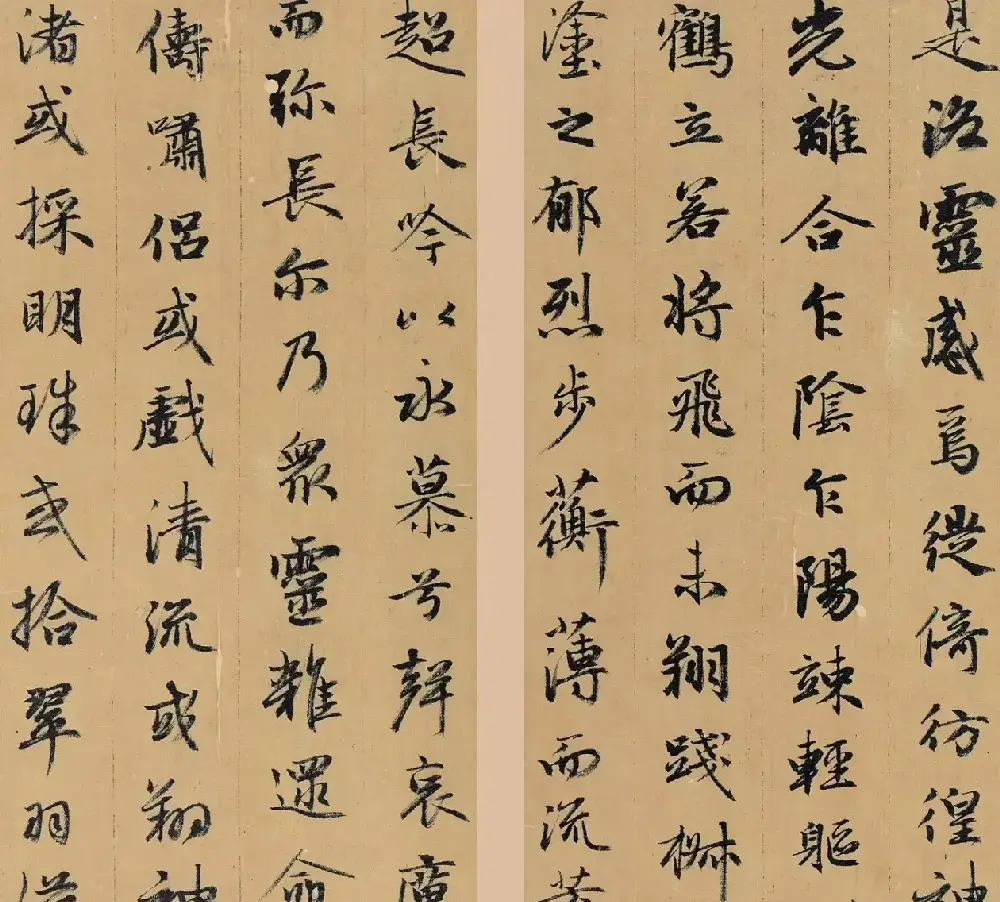 是洛靈感焉徙倚彷徨神
光離合乍陰乍陽竦輕軀
鶴立若將飛而未翔踐椒
塗之郁烈步蘅薄而流芳
超長吟以永慕兮聲哀厲
而弥長尔乃眾靈雜遝命
儔嘯侶或戲清流或翔神
渚或採明珠或拾翠羽從